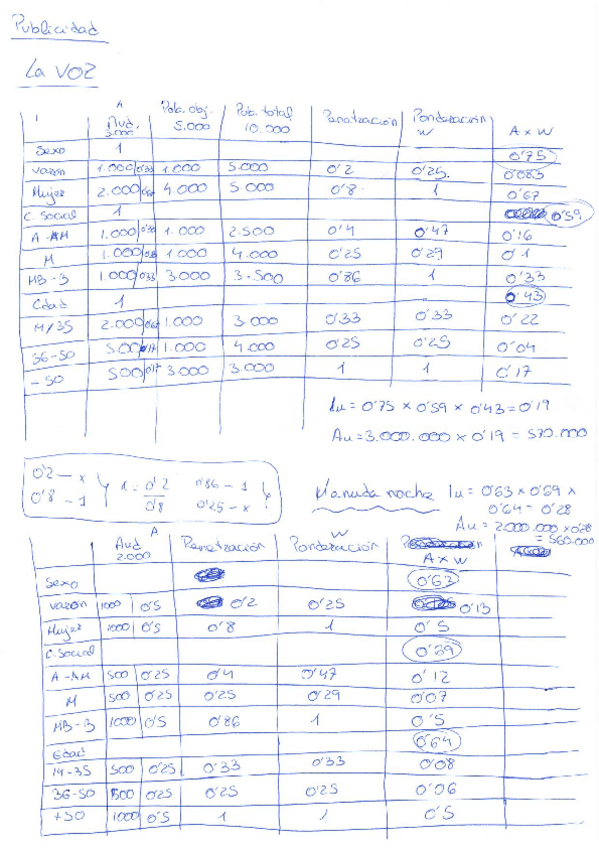 Publicidad
La VOZ
A Aud. 3.000 Pob. obj. 5.000 Pob. total 10.000 Penetración Ponderación W A x W
Sexo 1 0'75
Varón 1.000 0'33 1.000 5.000 0'2 0'25 0'083
Mujer 2.000 0'67 4.000 5 000 0'8 1 0'67
C. Social 1 0'59
A-AM 1.000 1.000 2.500 0'4 0'47 0'16
M 1.000 0'33 1000 4.000 0'25 0'29 0'1
MB-B 1.000 0'33 3.000 3.500 0'86 1 0'33
Edad 1 0'43
14/35 2.000 0'67 1.000 3 000 0'33 0'33 0'22
36-50 500 0'17 1.000 4.000 0'25 0'25 0'04
-50 500 0'17 3.000 3.000 1 1 0'17
Iu = 0'75 x 0'59 x 0'43 = 0'19
Au = 3.000.000 x 0'19 = 570.000
0'2 — x
0'8 — 1
x = 0'2 / 0'8
0'86 — 1
0'25 — x
Manuda noche Iu = 0'63 x 0'69 x
0'64 = 0'28
Au = 2.000.000 x 0'28
= 560.000
A Aud 2.000 Penetración W Ponderación A x W
Sexo 0'63
Varón 1000 0'5 0'2 0'25 0'13
Mujer 1000 0'5 0'8 1 0'5
C. Social
A-AM 500 0'25 0'4 0'47 0'12
M 500 0'25 0'25 0'29 0'07
MB-B 1000 0'5 0'86 1 0'5
Edad 0'64
14-35 500 0'25 0'33 0'33 0'08
36-50 500 0'25 0'25 0'25 0'06
+50 1000 0'5 1 1 0'5